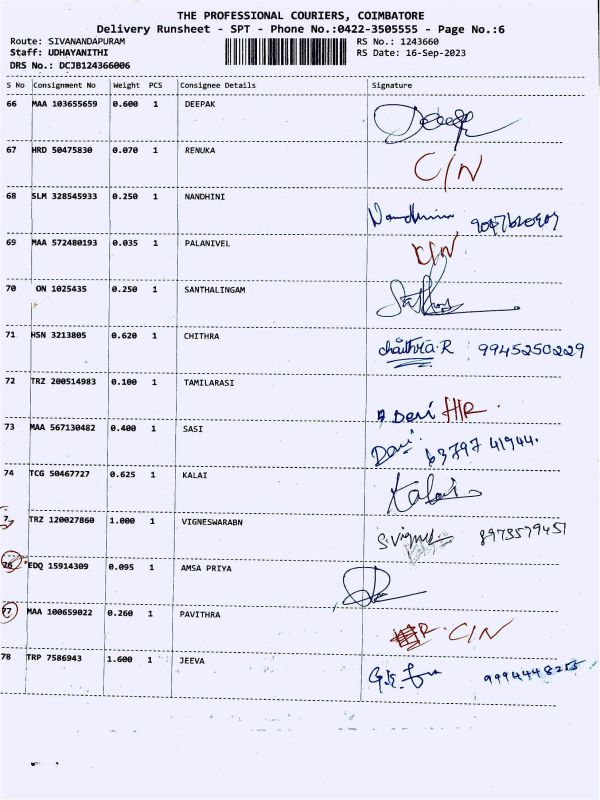 THE PROFESSIONAL COURIERS, COIMBATORE
Delivery Runsheet - SPT - Phone No.:0422-3505555 - Page No.:6
Route: SIVANANDAPURAM RS No.: 1243660
Staff: UDHAYANITHI RS Date: 16-Sep-2023
DRS No.: DCJB124366006
S No Consignment No Weight PCS Consignee Details Signature
66 MAA 103655659 0.600 1 DEEPAK Deep
67 HRD 50475830 0.070 1 RENUKA C/N
68 SLM 328545933 0.250 1 NANDHINI Nandhini
69 MAA 572480193 0.035 1 PALANIVEL C/N
70 ON 1025435 0.250 1 SANTHALINGAM
71 HSN 3213805 0.620 1 CHITHRA chaithra.R 9945250229
72 TRZ 200514983 0.100 1 TAMILARASI Devi H/R
73 MAA 567130482 0.400 1 SASI Devi 63797 41944.
74 TCG 50467727 0.625 1 KALAI Kalai
7 TRZ 120027860 1.000 1 VIGNESWARABN S.Vignes 8973579451
76 EDQ 15914309 0.095 1 AMSA PRIYA
77 MAA 100659022 0.260 1 PAVITHRA C/N
78 TRP 7586943 1.600 1 JEEVA